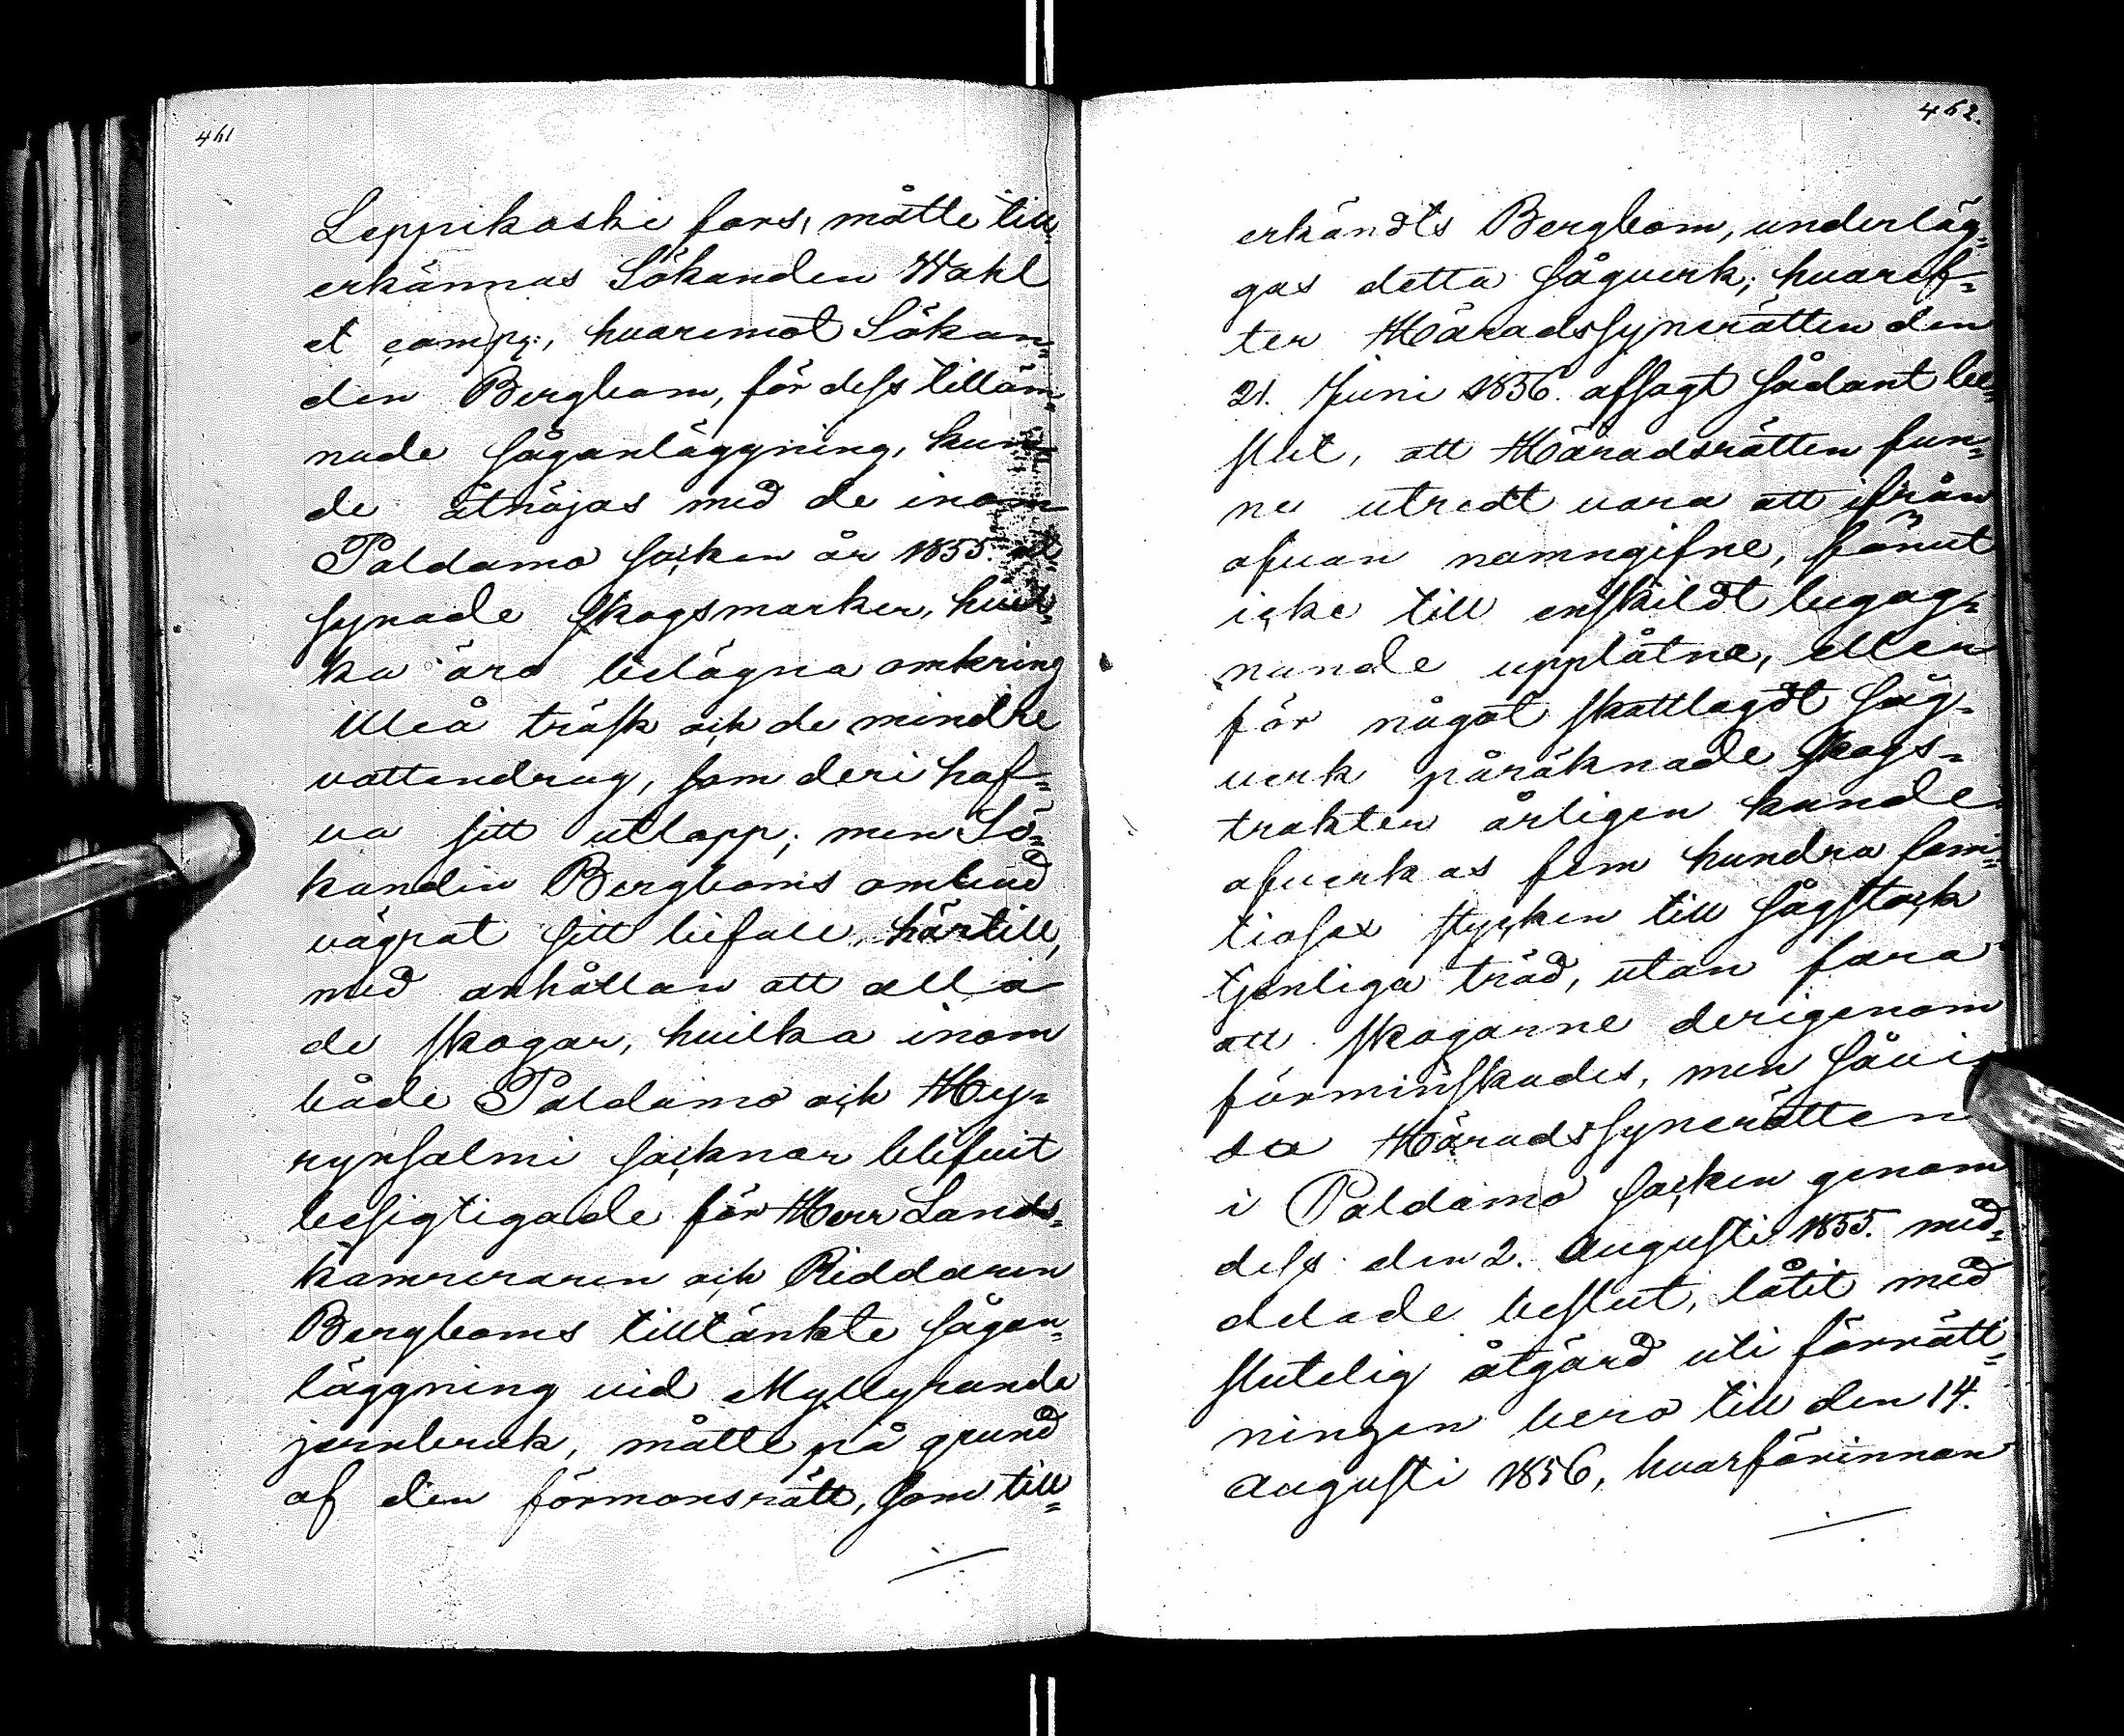 461
Leppikoski fors, måtte till-
erkännas Sökanden Wahl
et comp:, hvaremot Sökan-
den Bergbom, för dess tilläm-
nade såganläggning, kun-
de åtnöjas med de inom
Paldamo socken år 1855
synade skogsmarker, hvil-
ka äro belägna omkring
Uleå träsk och de mindre
vattendrag, som deri haf-
va sitt utlopp; men Sö-
kanden Bergboms ombud
vägrat sitt bifall härtill,
med anhållan att alla
de skogar, hvilka inom
både Paldamo och Hy-
rynsalmi socknar blifvit
besigtigade för Herr Lands-
kamreraren och Riddaren
Bergboms tilltänkte sågan-
läggning vid Myllyranda
jernbruk, måtte på grund
af den förmonsrätt, som till-
462.
erkändts Bergbom, underläg-
gas detta sågverk; hvaref-
ter Häradssynerätten den
21. Juni 1856. afsagt sådant be-
slut, att Häradsrätten fun-
ne utredt vara att ifrån
ofvan namngifne, förut
icke till enskildt begag-
nande upplåtne, eller
för något skattlagdt såg-
verk påräknade skogs-
trakter årligen kunde
afverkas fem hundra fem-
tiosex stycken till sågstock
tjenliga träd, utan fara
att skogarne derigenom
förminskades, men såvi-
da Häradssynerätten
i Paldamo socken genom
dess den 2. Augusti 1855. med-
delade beslut, låtit med
slutelig åtgärd uti förrätt-
ningen bero till den 14.
Augusti 1856, hvarförinnan